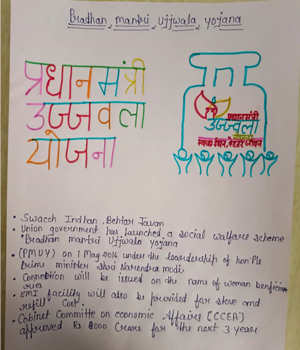 Pradhan mantri Ujjwala yojana
प्रधानमंत्री
उज्जवला
योजना
प्रधानमंत्री
उज्जवला
योजना
स्वच्छ ईंधन, बेहतर जीवन
Swacch Indhan Behtar Javan
Union government has launched a social welfare scheme
"Pradhan mantri Ujjwala yojana
(PMUY) on 1 May 2016 under the leadership of hon'ble
Prime minister Shri Narendra modi
Connection will be issued on the name of woman beneficia
ries
EMI facility will also be provided for stove and
refill cost.
Cabinet Committe on economic Affairs (CCEA)
approved Rs 8000 Crore for the next 3 years